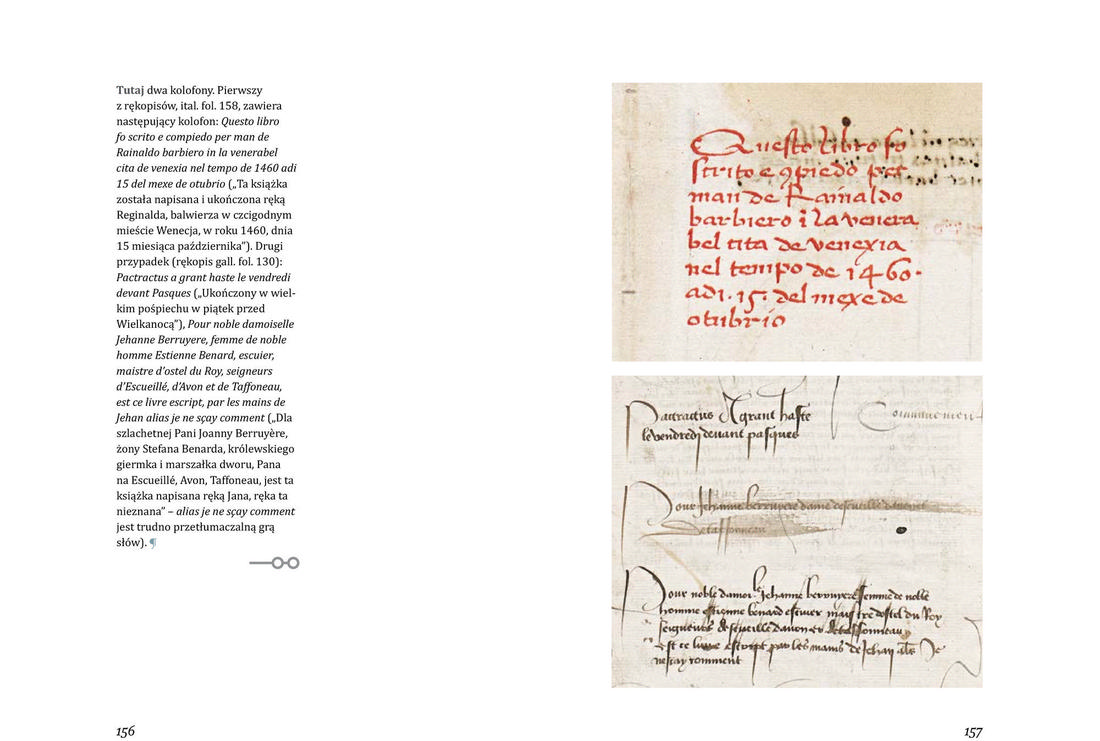 Tutaj dwa kolofony. Pierwszy
z rękopisów, ital. fol. 158, zawiera
następujący kolofon: Questo libro
fo scrito e compiedo per man de
Rainaldo barbiero in la venerabel
cita de venexia nel tempo de 1460 adi
15 del mexe de otubrio („Ta książka
została napisana i ukończona ręką
Reginalda, balwierza w czcigodnym
mieście Wenecja, w roku 1460, dnia
15 miesiąca października”). Drugi
przypadek (rękopis gall. fol. 130):
Pactractus a grant haste le vendredi
devant Pasques („Ukończony w wiel-
kim pośpiechu w piątek przed
Wielkanocą”), Pour noble damoiselle
Jehanne Berruyere, femme de noble
homme Estienne Benard, escuier,
maistre d’ostel du Roy, seigneurs
d’Escueillé, d’Avon et de Taffoneau,
est ce livre escript, par les mains de
Jehan alias je ne sçay comment („Dla
szlachetnej Pani Joanny Berruyère,
żony Stefana Benarda, królewskiego
giermka i marszałka dworu, Pana
na Escueillé, Avon, Taffoneau, jest ta
książka napisana ręką Jana, ręka ta
nieznana” – alias je ne sçay comment
jest trudno przetłumaczalną grą
słów). ¶
156
Questo libro fo
scrito e 9piedo per
man de Rainaldo
barbiero ī la venera
bel cita de venexia
nel tempo de 1460.
adi. 15. del mexe de
otubrio
Pactractus A grant haste
le vendredi devant pasques
Pour Jehanne berruyere dame descueille
Pour noble damoi Jehanne berruyere femme de noble
homme estienne benard escuier maistre dostel du Roy
seigneurs descueille davon et de taffonneau
Est ce livre escript par les mains de Jehan als Je
ne scay comment
157